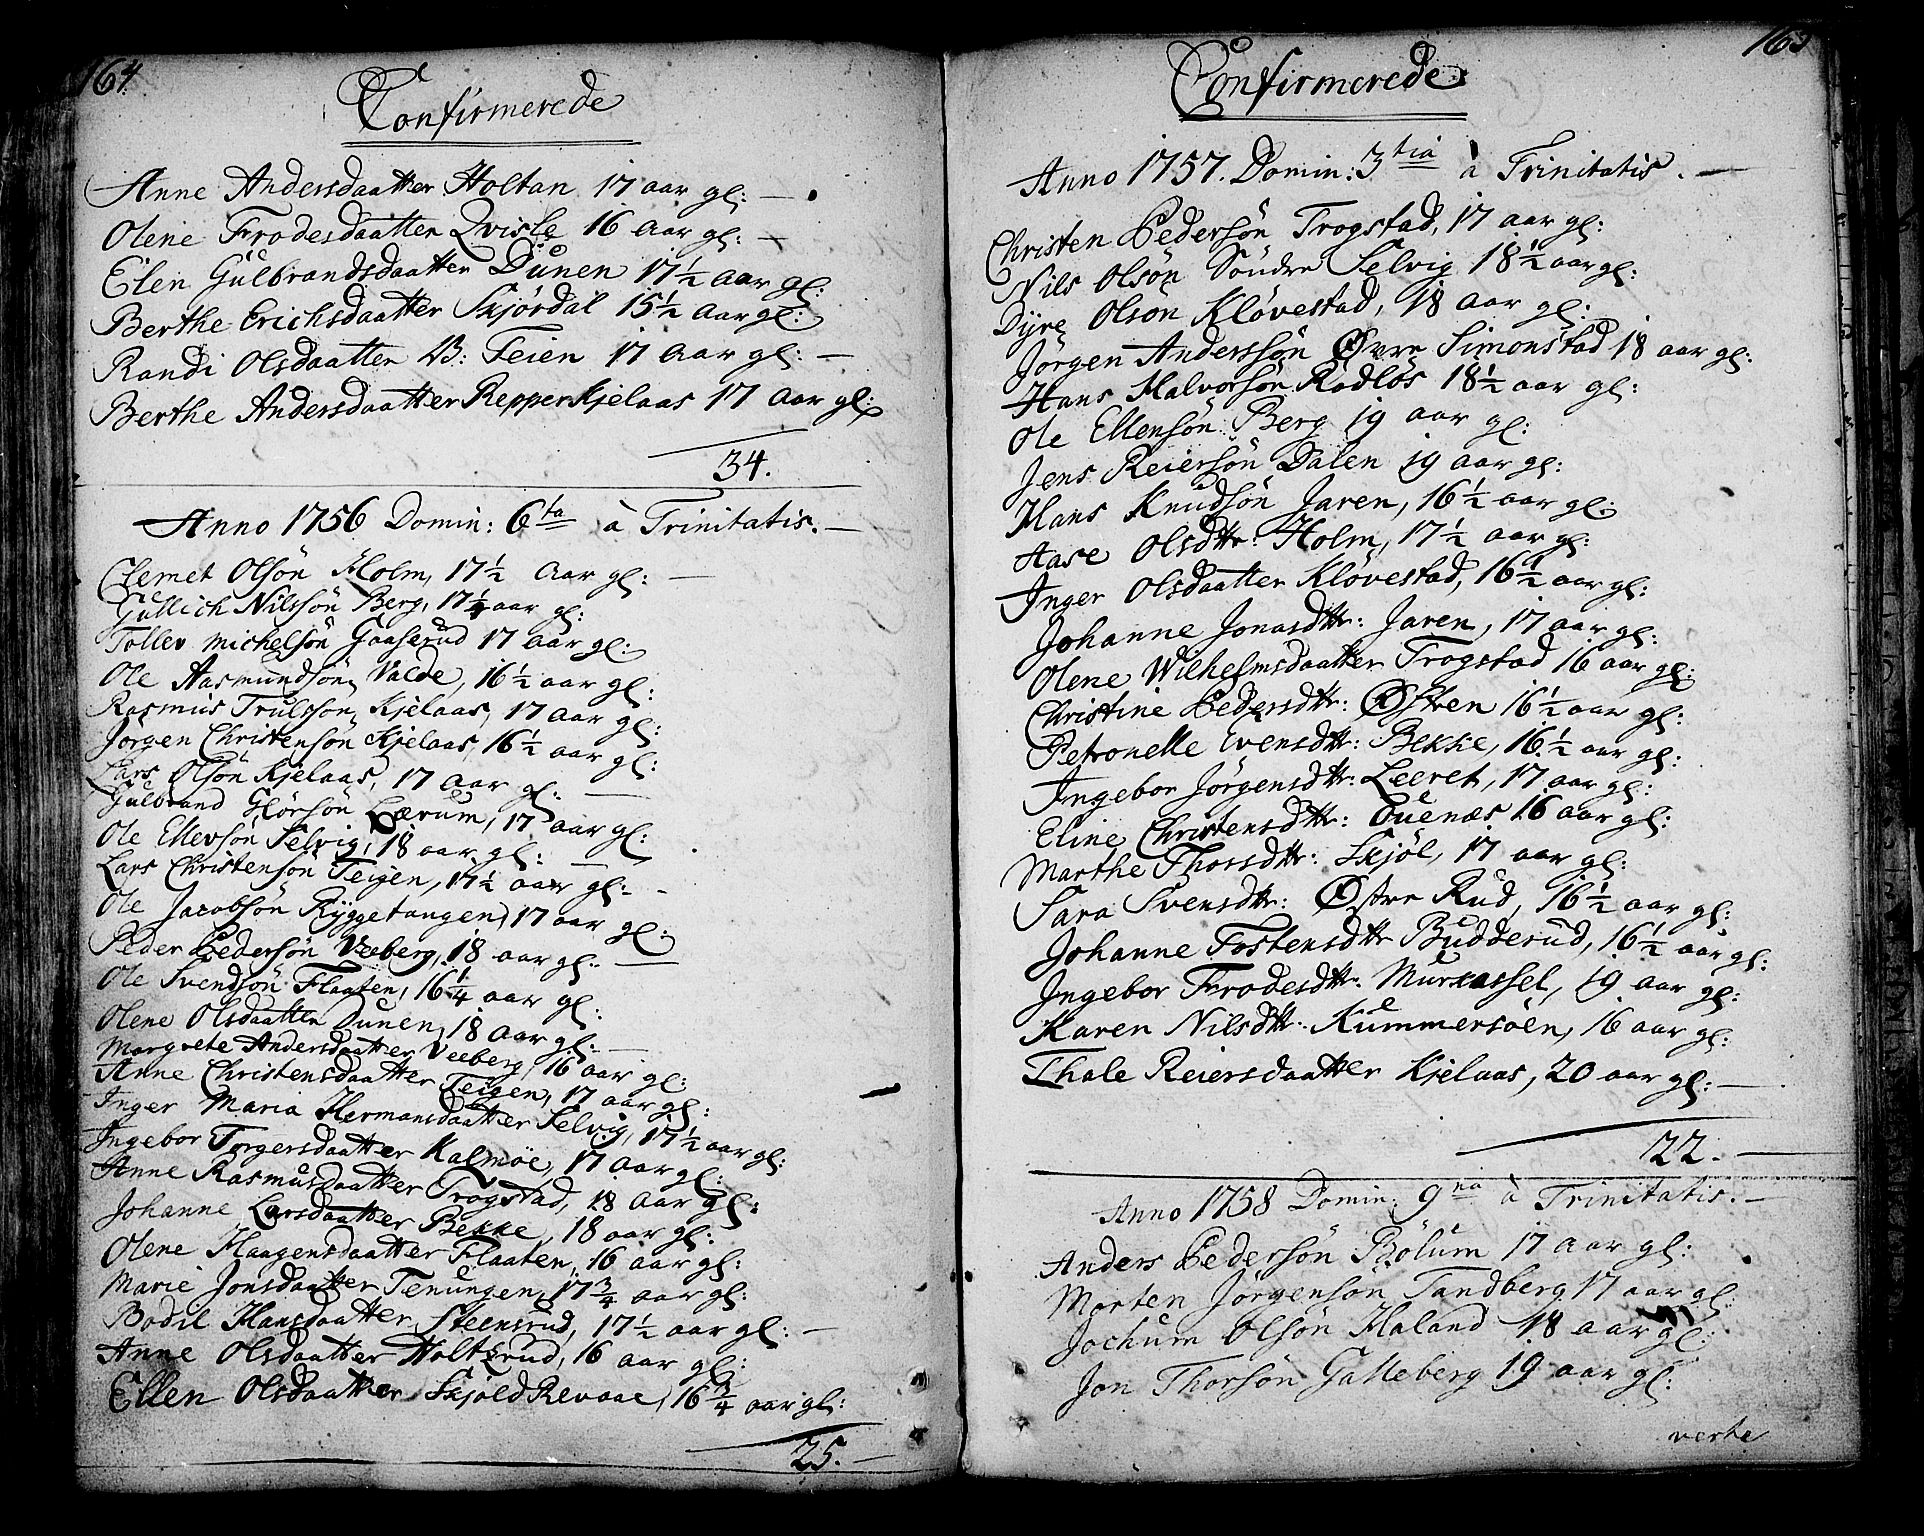 164
Confirmerede
Anne Andersdaatter Holtan 17 aar gl: —
Olene Frodesdaatter Qvisle 16 aar gl: —
Elen Gulbrandsdaatter Dünen 17½ aar gl:
Berthe Erichsdaatter Skjørdal 15½ aar gl:
Randi Olsdaatter B: Teien 17 aar gl: —
Berthe Andersdaatter Repperkjelaas 17 aar gl:
34.
Anno 1756 Domin: 6ta à Trinitatis. —
Clemet Olsön Holm, 17½ aar gl: —
Gullich Nilssön Berg, 17¼ aar gl:
Tollev Michelsön Gaaserud 17 aar gl:
Ole Aasmundsön Valde, 16½ aar gl:
Rasmus Trulssön Kjelaas, 17 aar gl:
Jørgen Christensön Kjelaas, 16½ aar gl:
Lars Olsön Kjelaas, 17 aar gl: —
Gulbrand Glörsön Lærum, 17 aar gl:
Ole Ellevsön Selvig, 18 aar gl: —
Lars Christensön Teigen, 17½ aar gl: -
Ole Jacobsön Ryggetangen, 17 aar gl:
Peder Pedersön Veeberg, 18 aar gl: —
Ole Svendsön Flaaten, 16¼ aar gl:
Olene Olsdaatter Dunen, 18 aar gl: —
Margrete Andersdaatter Veeberg, 16 aar gl:
Anne Christensdaatter Teigen, 17 aar gl:
Inger Maria Hermansdaatter Selvig, 17½ aar gl:
Ingebor Torgersdaatter Kalmöe, 17 aar gl:
Anne Rasmusdaatter Trogstad, 18 aar gl:
Johanne Larsdaatter Bekke, 18 aar gl:
Olene Haagensdaatter Flaaten, 16 aar gl:
Marie Jonsdaatter Tenungen, 17¾ aar gl:
Bodil Hansdaatter Steensrud, 17½ aar gl: —
Anne Olsdaatter Holtsrud, 16 aar gl:
Ellen Olsdaatter SkjoldRevaae, 16¾ aar gl:
25. —
165
Confirmerede
Anno 1757. Domin: 3tia à Trinitatis. —
Christen Pedersön Trogstad, 17 aar gl:
Nils Olsön Söndre Selvig 18½ aar gl:
Dyre Olsön Kløvestad, 18 aar gl:
Jørgen Anderssön Øvre Simonstad 18 aar gl:
Hans Halvorsön Rødløs 18½ aar gl:
Ole Ellensön Berg 19 aar gl:
Jens Reiersön Dalen 19 aar gl:
Hans Knudsön Jaren, 16½ aar gl:
Aase Olsdttr: Holm, 17½ aar gl:
Inger Olsdaatter Kløvestad, 16½ aar gl:
Johanne Jonasdttr: Jaren, 17 aar gl:
Olene Wilhelmsdaatter Trogstad 16 aar gl:
Christine Pedersdttr: Østren 16½ aar gl:
Petronelle Evensdttr: Bekke, 16½ aar gl:
Ingebor Jørgensdttr: Leeret, 17 aar gl:
Eline Christensdttr: Tuenæs 16 aar gl:
Marthe Thorsdttr: Skjøl, 17 aar gl:
Sara Svensdttr: Østre Rud, 16½ aar gl:
Johanne Tostensdttr Budderud, 16½ aar gl:
Ingebor Frodesdttr: Murkassel, 19 aar gl:
Karen Nilsdttr: Kummersöen, 16 aar gl:
Thale Reiersdaatter Kjelaas, 20 aar gl: —
22. —
Anno 1758 Domin: 9na à Trinitatis. —
Anders Pedersön Bölum 17 aar gl:
Morten Jörgensön Tandberg 17 aar gl:
Jochum Olsön Haland 18 aar gl:
Jon Thorsön Galleberg 19 aar gl:
verte